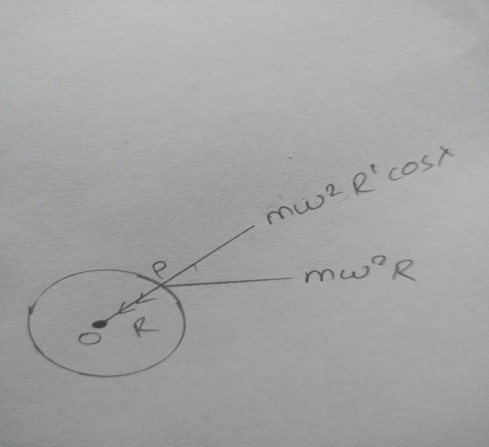 mω² R' cosλ
P
mω²R
R
O